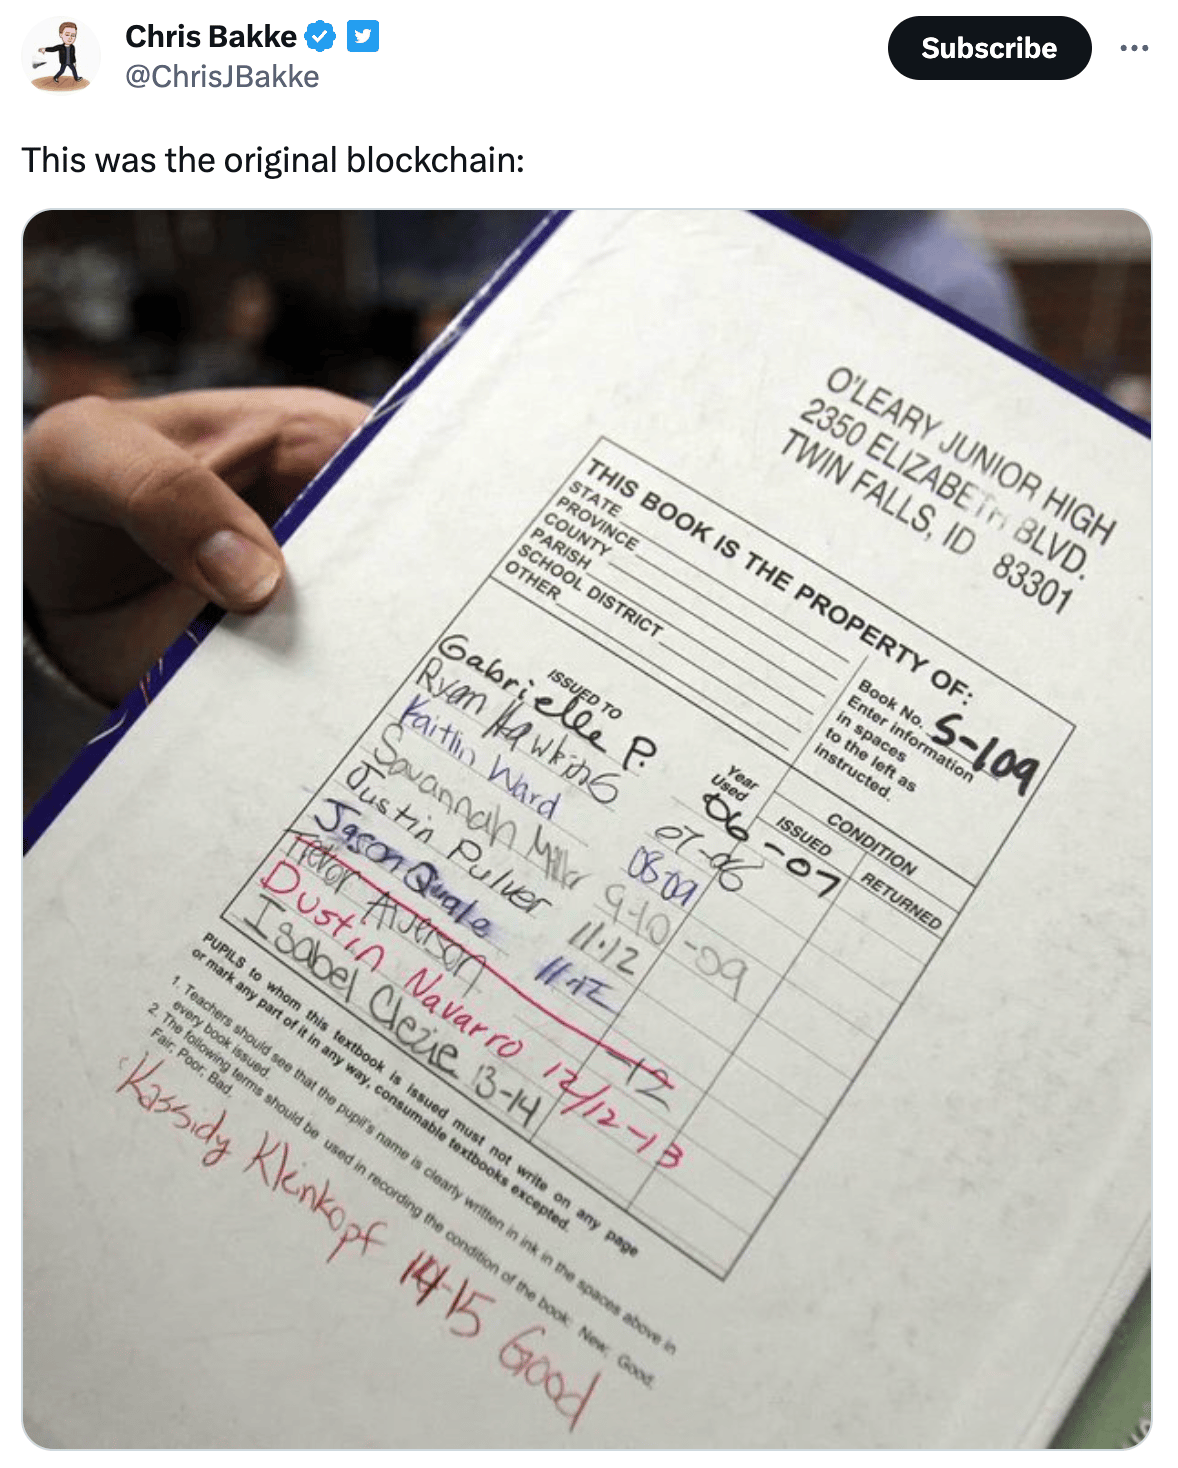 Chris Bakke
@ChrisJBakke
Subscribe
This was the original blockchain:
O'LEARY JUNIOR HIGH
2350 ELIZABETH BLVD.
TWIN FALLS, ID 83301
THIS BOOK IS THE PROPERTY OF:
STATE
PROVINCE
COUNTY
PARISH
SCHOOL DISTRICT
OTHER
Book No. S-109
Enter information
in spaces
to the left as
instructed.
ISSUED TO
Year
Used
CONDITION
ISSUED
RETURNED
Gabrielle P. 06-07
Ryan Hawkins 07-06
Kaitlin Ward 08 09
Savannah Miller 9-10 -09
Justin Pulver 11-12
Jason Quale 11-12
Trevor -12
Dustin Navarro 12/12-13
Isabel 13-14
PUPILS to whom this textbook is issued must not write on any page
or mark any part of it in any way, consumable textbooks excepted.
1. Teachers should see that the pupil's name is clearly written in ink in the spaces above in
every book issued.
2. The following terms should be used in recording the condition of the book: New; Good;
Fair; Poor; Bad.
Kassidy Kleinkopf 14-15 Good